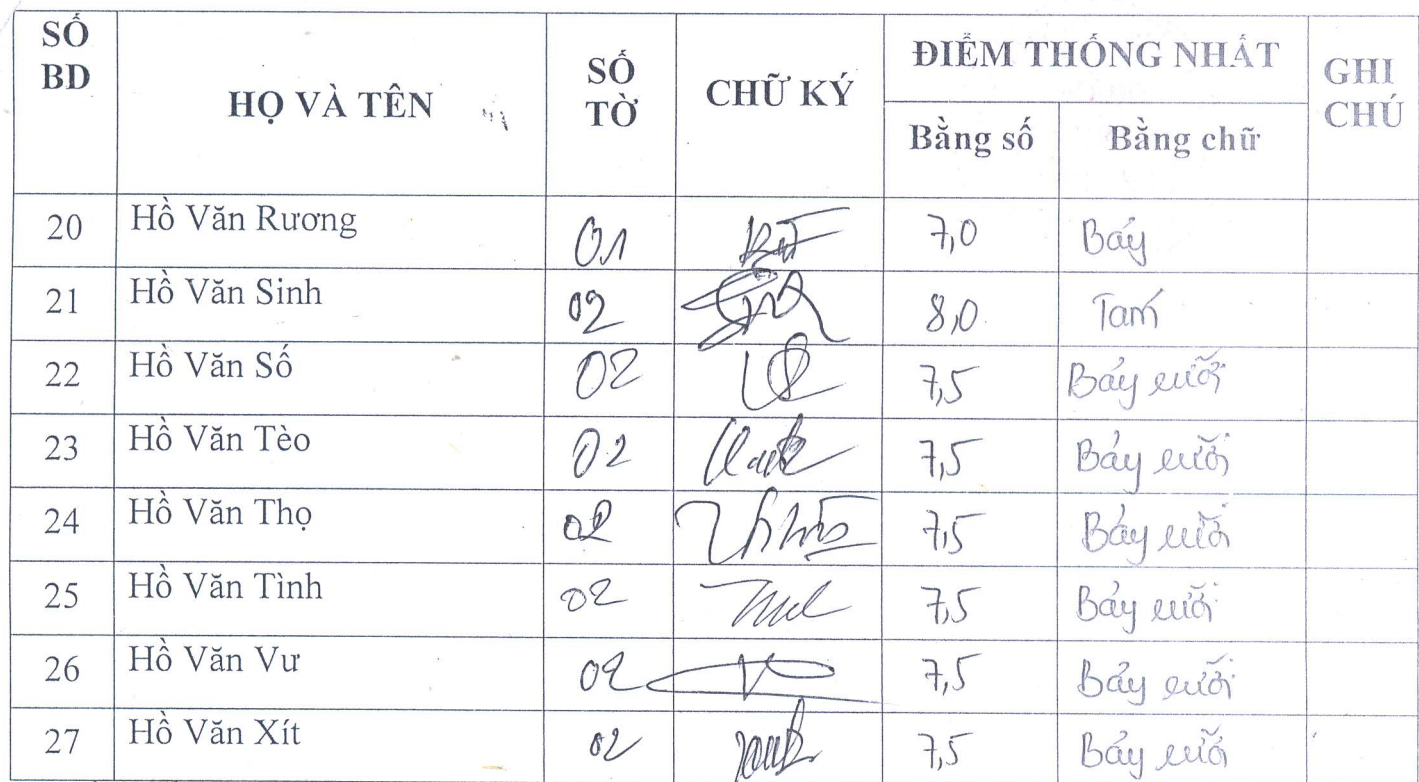 SỐ BD HỌ VÀ TÊN SỐ TỜ CHỮ KÝ ĐIỂM THỐNG NHẤT GHI CHÚ
Bằng số Bằng chữ
20 Hồ Văn Rương 01 7,0 Bảy
21 Hồ Văn Sinh 02 8,0 Tám
22 Hồ Văn Số 02 7,5 Bảy rưỡi
23 Hồ Văn Tèo 02 7,5 Bảy rưỡi
24 Hồ Văn Thọ 02 7,5 Bảy rưỡi
25 Hồ Văn Tình 02 7,5 Bảy rưỡi
26 Hồ Văn Vư 02 7,5 Bảy rưỡi
27 Hồ Văn Xít 02 7,5 Bảy rưỡi